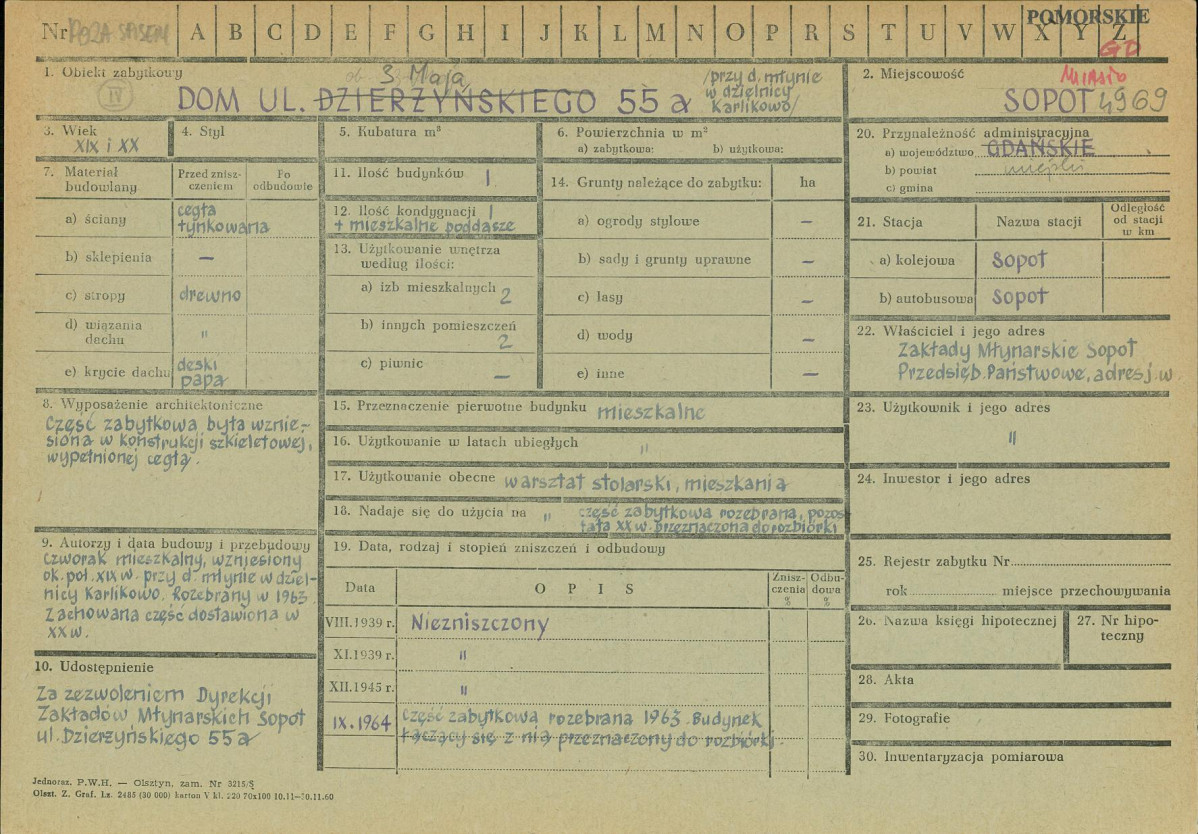 Nr POZA SPISEM A B C D E F G H I J K L M N O P R S T U V W X Y Z
POMORSKIE
GD
MIASTO
1. Obiekt zabytkowy
IV
3 Maja
DOM UL. DZIERŻYŃSKIEGO 55 a
/przy d. młynie
w dzielnicy
Karlikowo/
2. Miejscowość
SOPOT 4969
3. Wiek
XIX i XX
4. Styl
5. Kubatura m³
6. Powierzchnia w m²
a) zabytkowa: b) użytkowa:
7. Materiał budowlany
Przed zniszczeniem
Po odbudowie
a) ściany cegła tynkowana
b) sklepienia —
c) stropy drewno
d) wiązania dachu "
e) krycie dachu deski papa
8. Wyposażenie architektoniczne
Część zabytkowa była wznie-
siona w konstrukcji szkieletowej,
wypełnionej cegłą.
9. Autorzy i data budowy i przebudowy
Czworak mieszkalny, wzniesiony
ok. poł. XIX w. przy d. młynie w dziel-
nicy Karlikowo. Rozebrany w 1963.
Zachowana część dostawiona w
XX w.
10. Udostępnienie
Za zezwoleniem Dyrekcji
Zakładów Młynarskich Sopot
ul. Dzierżyńskiego 55a
11. Ilość budynków 1
12. Ilość kondygnacji 1
+ mieszkalne poddasze
13. Użytkowanie wnętrza
według ilości:
a) izb mieszkalnych 2
b) innych pomieszczeń 2
c) piwnic —
14. Grunty należące do zabytku: ha
a) ogrody stylowe —
b) sady i grunty uprawne —
c) lasy —
d) wody —
e) inne —
15. Przeznaczenie pierwotne budynku mieszkalne
16. Użytkowanie w latach ubiegłych "
17. Użytkowanie obecne warsztat stolarski, mieszkania
18. Nadaje się do użycia na " część zabytkowa rozebrana, pozos
tała XX w. przeznaczona do rozbiórki
19. Data, rodzaj i stopień zniszczeń i odbudowy
Data
O P I S
Zniszczenia %
Odbudowa %
VIII.1939 r. Niezniszczony
XI.1939 r. "
XII.1945 r. "
IX.1964 Część zabytkowa rozebrana 1963. Budynek
łączący się z nią przeznaczony do rozbiórki.
20. Przynależność administracyjna
a) województwo GDAŃSKIE
b) powiat miejski
c) gmina
21. Stacja
Nazwa stacji
Odległość od stacji w km
a) kolejowa Sopot
b) autobusowa Sopot
22. Właściciel i jego adres
Zakłady Młynarskie Sopot
Przedsięb. Państwowe, adres j. w.
23. Użytkownik i jego adres
"
24. Inwestor i jego adres
25. Rejestr zabytku Nr
rok miejsce przechowywania
26. Nazwa księgi hipotecznej
27. Nr hipoteczny
28. Akta
29. Fotografie
30. Inwentaryzacja pomiarowa
Jednoraz. P.W.H. — Olsztyn, zam. Nr 3215/Ş
Olszt. Z. Graf. Lz. 2485 (30 000) karton V kl. 220 70x100 10.11—30.11.60